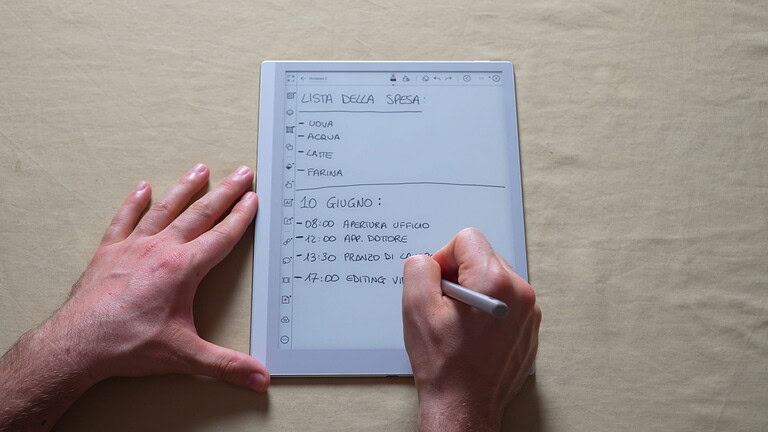 LISTA DELLA SPESA:
- UOVA
- ACQUA
- LATTE
- FARINA
10 GIUGNO:
- 08:00 APERTURA UFFICIO
- 12:00 APP. DOTTORE
- 13:30 PRANZO DI
- 17:00 EDITING